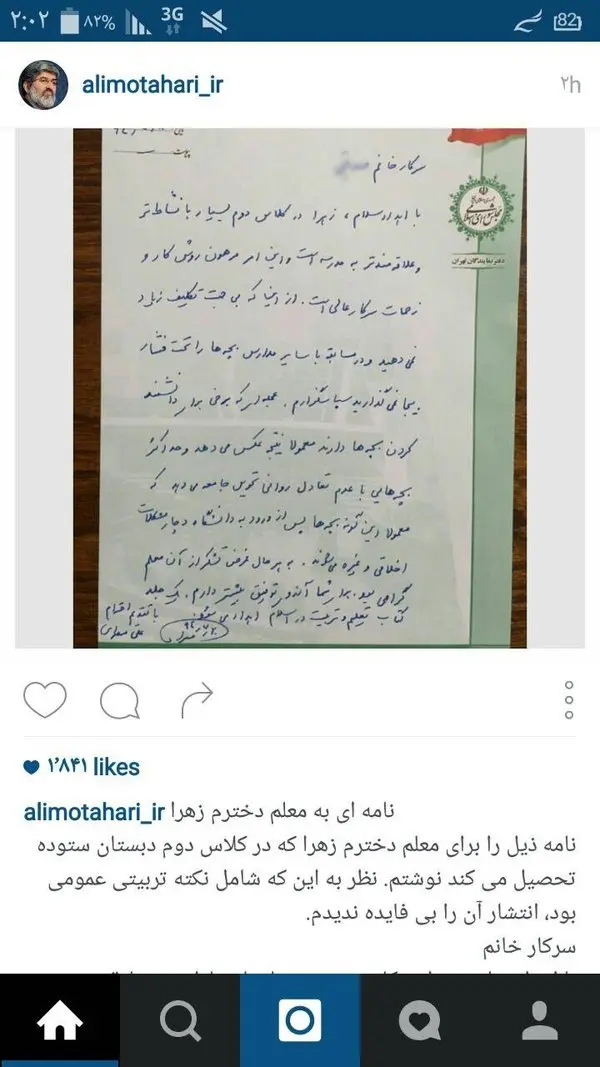 ۲:۰۲ ۸۲% 3G 82
alimotahari_ir ۲h
سرکار خانم
با اهداء سلام، زهرا در کلاس دوم بسیار با نشاط‌تر
و علاقه‌مندتر به مدرسه است و این امر مرهون روش کار و
زحمات سرکارعالی است. از اینکه بی جهت تکلیف زیاد
نمی دهید و در مسابقه با سایر مدارس بچه‌ها را تحت فشار
بیجا نمی گذارید سپاسگزارم. عجله‌ای که برخی برای دانشمند
کردن بچه‌ها دارند معمولا نتیجه عکس می دهد و حداکثر
بچه‌هایی با عدم تعادل روانی تحویل جامعه می دهد که
معمولا این گونه بچه‌ها پس از ورود به دانشگاه دچار مشکلات
اخلاقی و غیره می‌شوند. به هر حال غرض تشکر از آن معلم
گرامی بود. برای شما آرزوی توفیق بیشتر دارم. یک جلد
کتاب تعلیم و تربیت در اسلام اهداء می شود.
با تقدیم احترام
علی مطهری
مجلس شورای اسلامی
دفتر نمایندگان تهران
۱٬۸۴۱ likes
alimotahari_ir نامه ای به معلم دخترم زهرا
نامه ذیل را برای معلم دخترم زهرا که در کلاس دوم دبستان ستوده
تحصیل می کند نوشتم. نظر به این که شامل نکته تربیتی عمومی
بود، انتشار آن را بی فایده ندیدم.
سرکار خانم